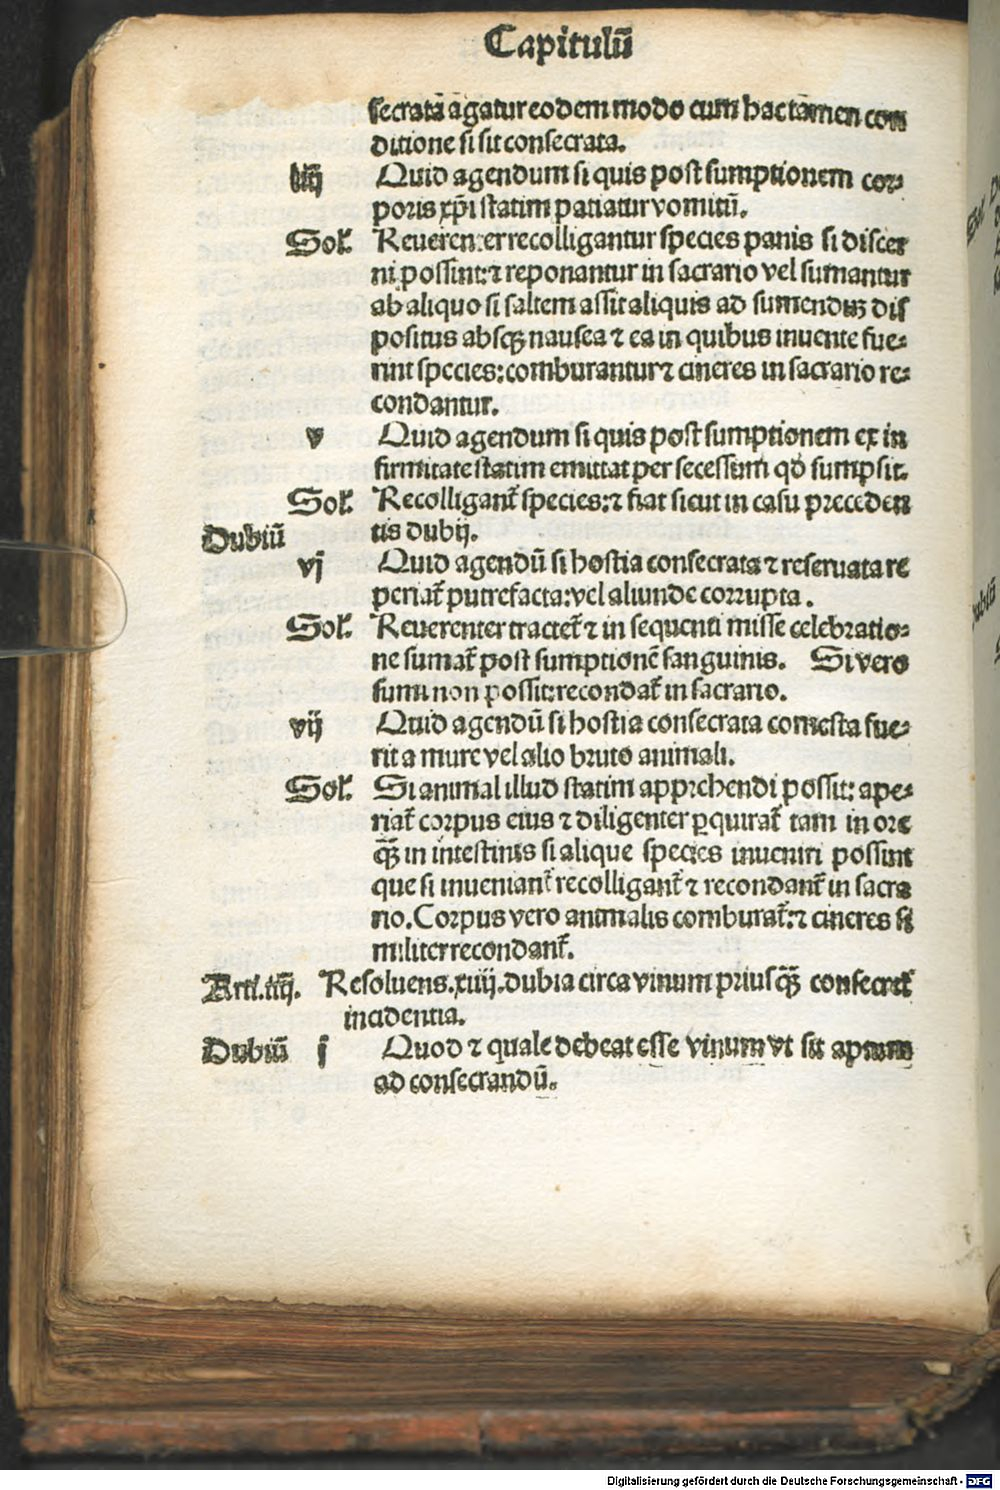 Capitulū
secratā agatur eodem modo cum hac tamen con
ditione si sit consecrata.
iiij Quid agendum si quis post sumptionem cor⸗
poris xp̄i statim patiatur vomitū.
Sol'. Reuerenter recolligantur species panis si discer
ni possint: ⁊ reponantur in sacrario vel sumantur
ab aliquo si saltem assit aliquis ad sumenduꝫ dis
positus absqꝫ nausea ⁊ ea in quibus inuente fue⸗
rint species: comburantur ⁊ cineres in sacrario re⸗
condantur.
v Quid agendum si quis post sumptionem ex in
firmitate statim emittat per secessum qd̄ sumpsit.
Sol'. Recolligant̄ species: ⁊ fiat sicut in casu preceden
Dubiū tis dubij.
vj Quid agendū si hostia consecrata ⁊ reseruata re
periat̄ putrefacta: vel aliunde corrupta.
Sol'. Reuerenter tractet̄ ⁊ in sequenti misse celebratio⸗
ne sumat̄ post sumptionē sanguinis. Si vero
sumi non possit: recondat̄ in sacrario.
vij Quid agendū si hostia consecrata comesta fue⸗
rit a mure vel alio bruto animali.
Sol'. Si animal illud statim apprehendi possit: ape⸗
riat̄ corpus eius ⁊ diligenter ꝑquirat̄ tam in ore
qꝫ̄ in intestinis si alique species inueniri possint
que si inueniant̄ recolligant̄ ⁊ recondant̄ in sacra
rio. Corpus vero animalis comburat̄: ⁊ cineres si
militer recondant̄.
Arti. iiij. Resoluens. xiiij. dubia circa vinum priusqꝫ̄ consecret̄
incidentia.
Dubiū j Quod ⁊ quale debeat esse vinum vt sit aptum
ad consecrandū.
Digitalisierung gefördert durch die Deutsche Forschungsgemeinschaft - DFG